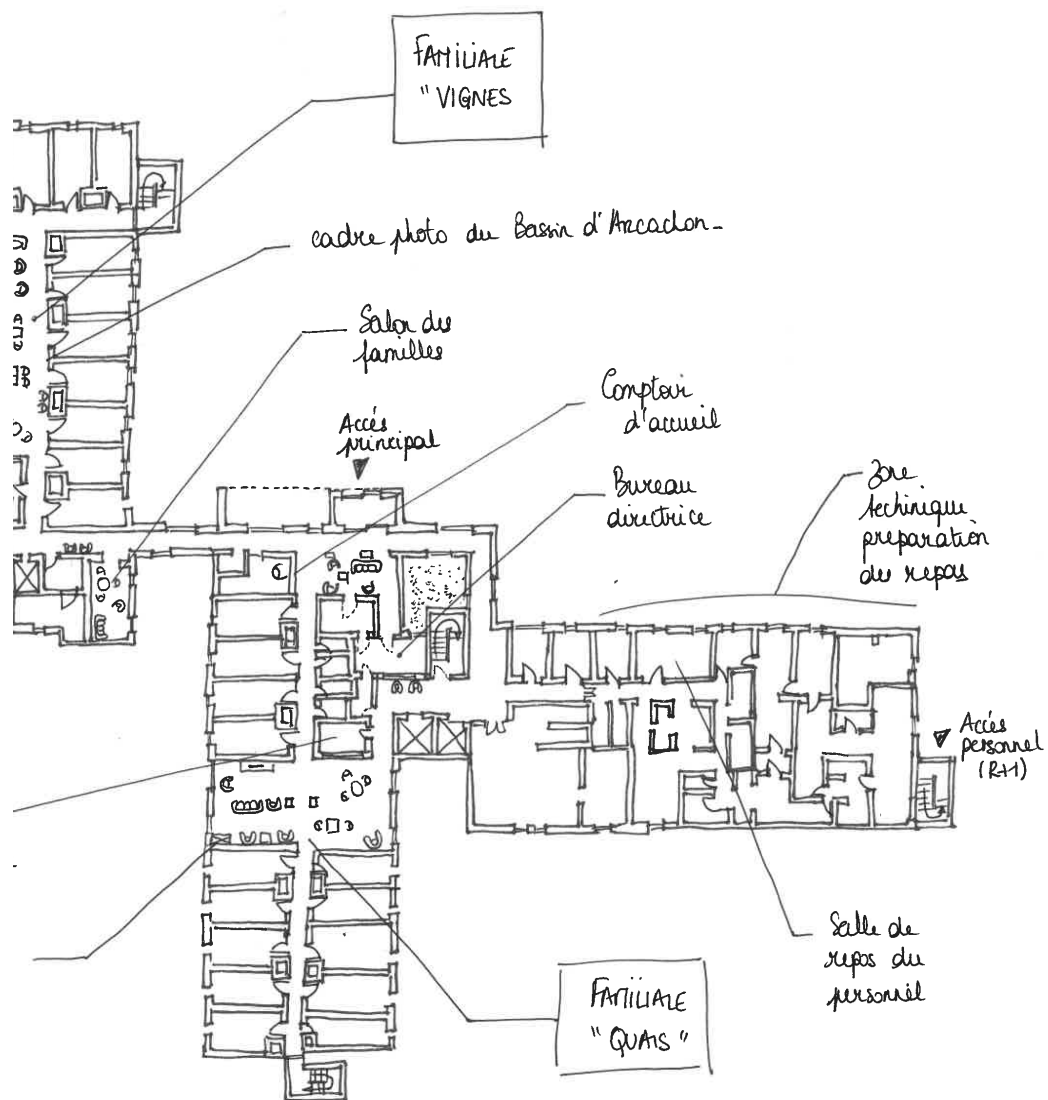 FAMILIALE
"VIGNES
cadre photo du Bassin d'Arcachon-
Salon des
familles
Accès
principal
Comptoir
d'accueil
Bureau
directrice
Zone
technique
préparation
des repas
Accès
personnel
(R+1)
Salle de
repos du
personnel
FAMILIALE
"QUAIS"